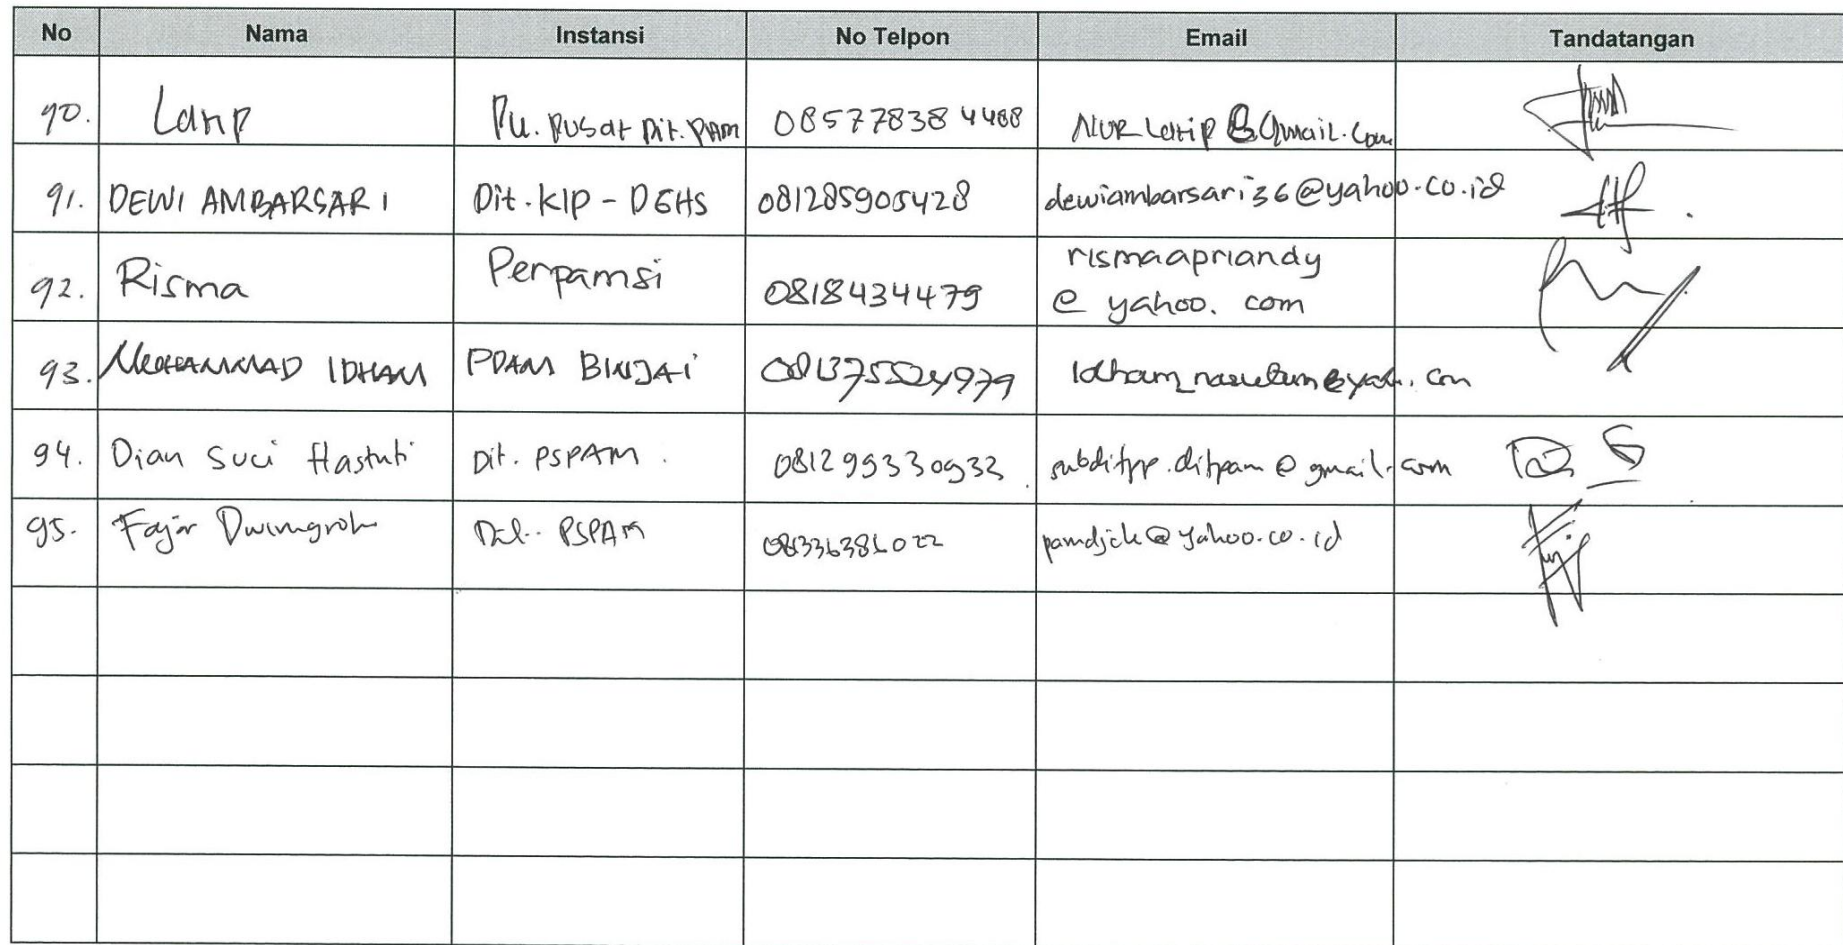 No Nama Instansi No Telpon Email Tandatangan
90. Latip Pu. Pusat Dit. PAM 085778384488 NUR Latip @gmail.com
91. DEWI AMBARSARI Dit. KIP - DGHS 081285905428 dewiambarsari36@yahoo.co.id
92. Risma Perpamsi 0818434479 rismaapriandy
@ yahoo. com
93. MUHAMMAD IDHAM PDAM BINJAI
94. Dian Suci Hastuti Dit. PSPAM. 081299330932 subditpp.ditpam@gmail.com
95. Fajar PSPAM @yahoo.co.id